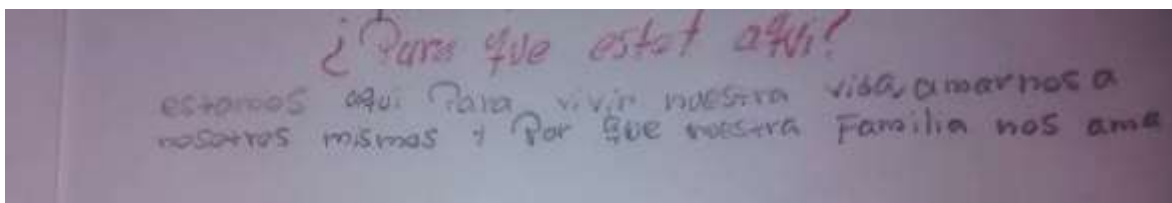 ¿Para que estat aqui?
estamos aqui Para vivir nuestra vida, amarnos a
nosotros mismos y Por que nuestra Familia nos ama